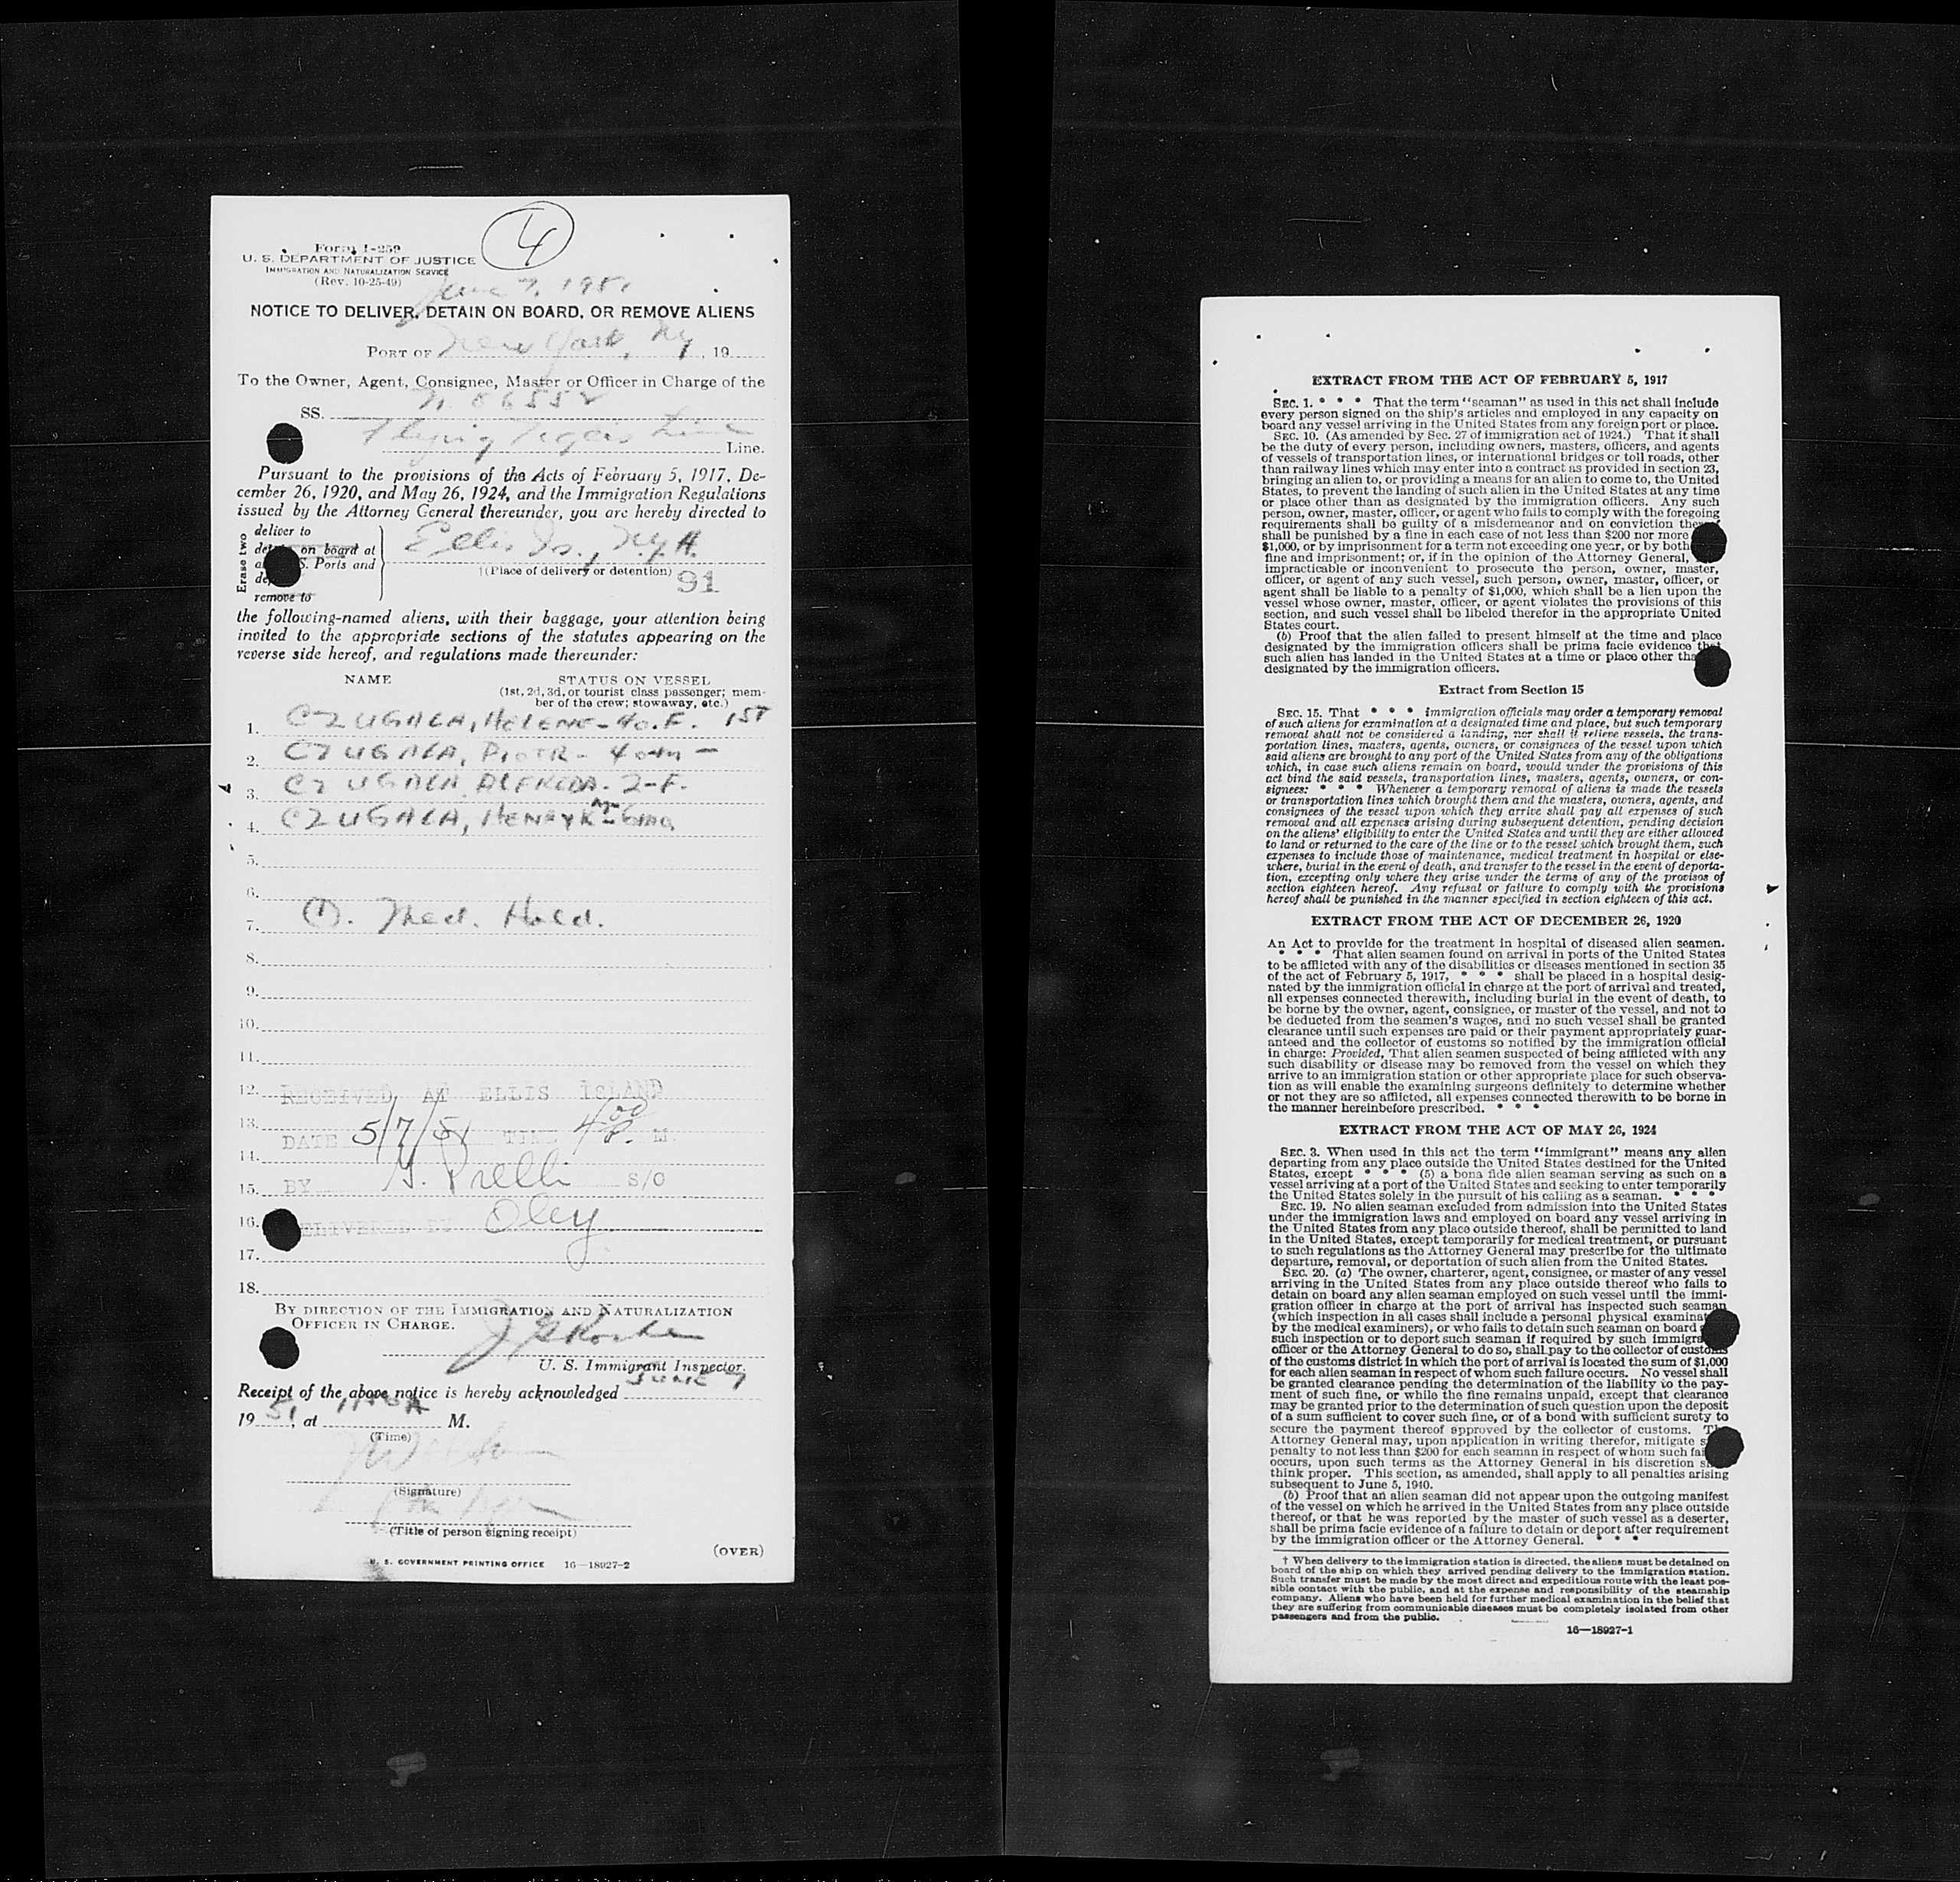 4
Form I-259
U. S. DEPARTMENT OF JUSTICE
IMMIGRATION AND NATURALIZATION SERVICE
(Rev. 10-25-49)
June 7, 1951
NOTICE TO DELIVER, DETAIN ON BOARD, OR REMOVE ALIENS
PORT OF New York, NY, 19
To the Owner, Agent, Consignee, Master or Officer in Charge of the
SS. N 86552
Flying Tigers Line Line.
Pursuant to the provisions of the Acts of February 5, 1917, De-
cember 26, 1920, and May 26, 1924, and the Immigration Regulations
issued by the Attorney General thereunder, you are hereby directed to
Erase two
deliver to
on board at
S. Ports and
remove to
Ellis Is., N.Y.H.
†(Place of delivery or detention)
91
the following-named aliens, with their baggage, your attention being
invited to the appropriate sections of the statutes appearing on the
reverse side hereof, and regulations made thereunder:
NAME STATUS ON VESSEL
(1st, 2d, 3d, or tourist class passenger; mem-
ber of the crew; stowaway, etc.)
1. CZUGALA, HELENE - 40. F. 1ST
2. CZUGALA, PIOTR - 40 M -
3. CZUGALA ALFREDA - 2 - F.
4. CZUGALA, HENRYK - 6mo.
5.
6.
7. (1). Med. Hold.
8.
9.
10.
11.
12. RECEIVED AT ELLIS ISLAND
13. DATE 5/7/51 TIME 4 00 P. M.
14.
15. BY S/O
16. DELIVERED BY Oley
17.
18.
BY DIRECTION OF THE IMMIGRATION AND NATURALIZATION
OFFICER IN CHARGE.
U. S. Immigrant Inspector.
Receipt of the above notice is hereby acknowledged June 7
19 51, at M.
(Time)
(Signature)
(Title of person signing receipt)
(OVER)
U. S. GOVERNMENT PRINTING OFFICE 16—18927-2
EXTRACT FROM THE ACT OF FEBRUARY 5, 1917
SEC. 1. * * * That the term "seaman" as used in this act shall include
every person signed on the ship's articles and employed in any capacity on
board any vessel arriving in the United States from any foreign port or place.
SEC. 10. (As amended by Sec. 27 of immigration act of 1924.) That it shall
be the duty of every person, including owners, masters, officers, and agents
of vessels of transportation lines, or international bridges or toll roads, other
than railway lines which may enter into a contract as provided in section 23,
bringing an alien to, or providing a means for an alien to come to, the United
States, to prevent the landing of such alien in the United States at any time
or place other than as designated by the immigration officers. Any such
person, owner, master, officer, or agent who fails to comply with the foregoing
requirements shall be guilty of a misdemeanor and on conviction thereof
shall be punished by a fine in each case of not less than $200 nor more
$1,000, or by imprisonment for a term not exceeding one year, or by both
fine and imprisonment; or, if in the opinion of the Attorney General,
impracticable or inconvenient to prosecute the person, owner, master,
officer, or agent of any such vessel, such person, owner, master, officer, or
agent shall be liable to a penalty of $1,000, which shall be a lien upon the
vessel whose owner, master, officer, or agent violates the provisions of this
section, and such vessel shall be libeled therefor in the appropriate United
States court.
(b) Proof that the alien failed to present himself at the time and place
designated by the immigration officers shall be prima facie evidence that
such alien has landed in the United States at a time or place other than
designated by the immigration officers.
Extract from Section 15
SEC. 15. That * * * immigration officials may order a temporary removal
of such aliens for examination at a designated time and place, but such temporary
removal shall not be considered a landing, nor shall it relieve vessels, the trans-
portation lines, masters, agents, owners, or consignees of the vessel upon which
said aliens are brought to any port of the United States from any of the obligations
which, in case such aliens remain on board, would under the provisions of this
act bind the said vessels, transportation lines, masters, agents, owners, or con-
signees: * * * Whenever a temporary removal of aliens is made the vessels
or transportation lines which brought them and the masters, owners, agents, and
consignees of the vessel upon which they arrive shall pay all expenses of such
removal and all expenses arising during subsequent detention, pending decision
on the aliens' eligibility to enter the United States and until they are either allowed
to land or returned to the care of the line or to the vessel which brought them, such
expenses to include those of maintenance, medical treatment in hospital or else-
where, burial in the event of death, and transfer to the vessel in the event of deporta-
tion, excepting only where they arise under the terms of any of the provisos of
section eighteen hereof. Any refusal or failure to comply with the provisions
hereof shall be punished in the manner specified in section eighteen of this act.
EXTRACT FROM THE ACT OF DECEMBER 26, 1920
An Act to provide for the treatment in hospital of diseased alien seamen.
* * * That alien seamen found on arrival in ports of the United States
to be afflicted with any of the disabilities or diseases mentioned in section 35
of the act of February 5, 1917, * * * shall be placed in a hospital desig-
nated by the immigration official in charge at the port of arrival and treated,
all expenses connected therewith, including burial in the event of death, to
be borne by the owner, agent, consignee, or master of the vessel, and not to
be deducted from the seamen's wages, and no such vessel shall be granted
clearance until such expenses are paid or their payment appropriately guar-
anteed and the collector of customs so notified by the immigration official
in charge: Provided, That alien seamen suspected of being afflicted with any
such disability or disease may be removed from the vessel on which they
arrive to an immigration station or other appropriate place for such observa-
tion as will enable the examining surgeons definitely to determine whether
or not they are so afflicted, all expenses connected therewith to be borne in
the manner hereinbefore prescribed. * * *
EXTRACT FROM THE ACT OF MAY 26, 1924
SEC. 3. When used in this act the term "immigrant" means any alien
departing from any place outside the United States destined for the United
States, except * * * (5) a bona fide alien seaman serving as such on a
vessel arriving at a port of the United States and seeking to enter temporarily
the United States solely in the pursuit of his calling as a seaman. * * *
SEC. 19. No alien seaman excluded from admission into the United States
under the immigration laws and employed on board any vessel arriving in
the United States from any place outside thereof, shall be permitted to land
in the United States, except temporarily for medical treatment, or pursuant
to such regulations as the Attorney General may prescribe for the ultimate
departure, removal, or deportation of such alien from the United States.
SEC. 20. (a) The owner, charterer, agent, consignee, or master of any vessel
arriving in the United States from any place outside thereof who fails to
detain on board any alien seaman employed on such vessel until the immi-
gration officer in charge at the port of arrival has inspected such seaman
(which inspection in all cases shall include a personal physical examinat
by the medical examiners), or who fails to detain such seaman on board
such inspection or to deport such seaman if required by such immigra
officer or the Attorney General to do so, shall pay to the collector of customs
of the customs district in which the port of arrival is located the sum of $1,000
for each alien seaman in respect of whom such failure occurs. No vessel shall
be granted clearance pending the determination of the liability to the pay-
ment of such fine, or while the fine remains unpaid, except that clearance
may be granted prior to the determination of such question upon the deposit
of a sum sufficient to cover such fine, or of a bond with sufficient surety to
secure the payment thereof approved by the collector of customs. The
Attorney General may, upon application in writing therefor, mitigate s
penalty to not less than $200 for each seaman in respect of whom such fai
occurs, upon such terms as the Attorney General in his discretion s
think proper. This section, as amended, shall apply to all penalties arising
subsequent to June 5, 1940.
(b) Proof that an alien seaman did not appear upon the outgoing manifest
of the vessel on which he arrived in the United States from any place outside
thereof, or that he was reported by the master of such vessel as a deserter,
shall be prima facie evidence of a failure to detain or deport after requirement
by the immigration officer or the Attorney General. * * *
† When delivery to the immigration station is directed, the aliens must be detained on
board of the ship on which they arrived pending delivery to the immigration station.
Such transfer must be made by the most direct and expeditious route with the least pos-
sible contact with the public, and at the expense and responsibility of the steamship
company. Aliens who have been held for further medical examination in the belief that
they are suffering from communicable diseases must be completely isolated from other
passengers and from the public.
16—18927-1